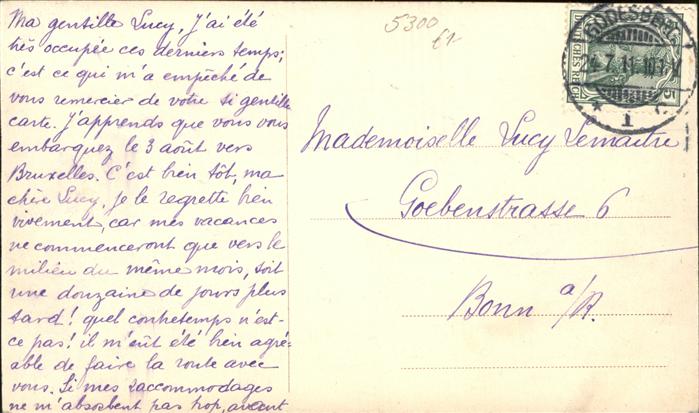 Ma gentille Lucy, j'ai été
très occupée ces derniers temps;
c'est ce qui m'a empêché de
vous remercier de votre si gentille
carte. J'apprends que vous vous
embarquez le 3 août vers
Bruxelles. C'est bien tôt, ma
chère Lucy, je le regrette bien
vivement car mes vacances
ne commenceront que vers le
milieu du même mois, soit
une douzaine de jours plus
tard! quel contretemps n'est-
ce pas! il m'eût été bien agré-
able de faire la route avec
vous. Si mes raccommodages
ne m'absorbent pas trop, avant
5300
GODESBERG
7.11.10
1
DEUTSCHES REICH
5
Mademoiselle Lucy Lemaitre
Goebenstrasse 6
Bonn a/R.